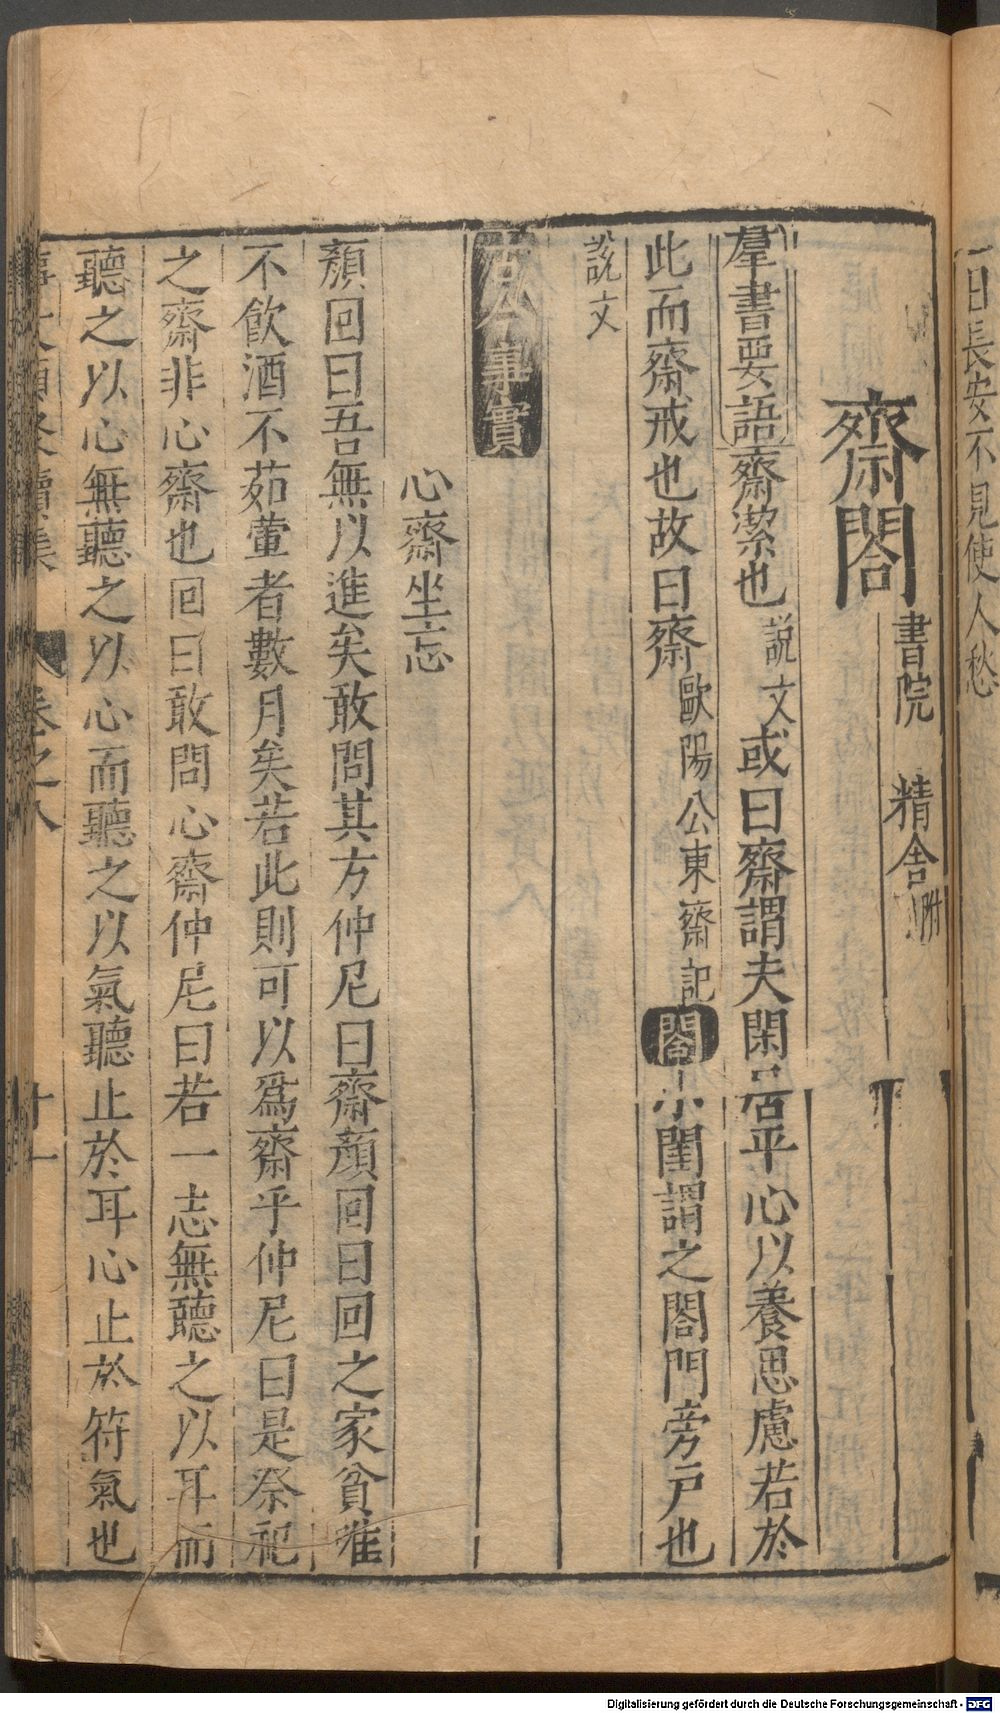 一日長安不見使人愁
齋閤 書院 精舍附
羣書要語齋潔也説文或曰齋謂夫閑居平心以養思慮若於
此而齋戒也故曰齋歐陽公東齋記閤小閨謂之閤門旁戶也
説文
古今事實
心齋坐忘
顏回曰吾無以進矣敢問其方仲尼曰齋顏回曰回之家貧雖
不飲酒不茹葷者數月矣若此則可以爲齋乎仲尼曰是祭祀
之齋非心齋也回曰敢問心齋仲尼曰若一志無聽之以耳而
聽之以心無聽之以心而聽之以氣聽止於耳心止於符氣也
事文類聚續集 卷之八 十一
Digitalisierung gefördert durch die Deutsche Forschungsgemeinschaft - DFG